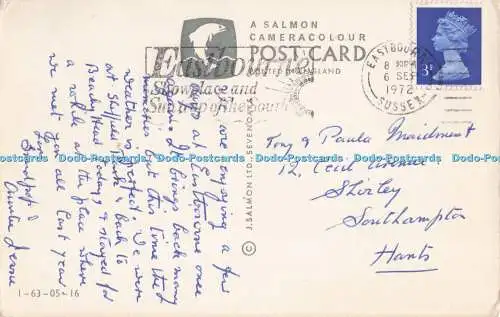 A SALMON
CAMERACOLOUR
POST CARD
PRINTED IN ENGLAND
Eastbourne
Showplace and
Sun trap of the South
EASTBOURNE
6 SEP
1972
SUSSEX
3P
We are enjoying a few
days at Eastbourne once
again. It brings back many
memories but this time the
weather is perfect. We were
at Sheffield Park & back to
Beachy Head today & stayed for
a while at the place where
we met you all last year
Love
Auntie Jessie
Tony & Paula Maidment
12, Cecil Avenue
Shirley
Southampton
Hants
© J. SALMON LTD. SEVENOAKS
1-63-05-16
Dodo-Postcards Dodo-Postcards Dodo-Postcards Dodo-Postcards Dodo-Postcards Dodo-Postcards